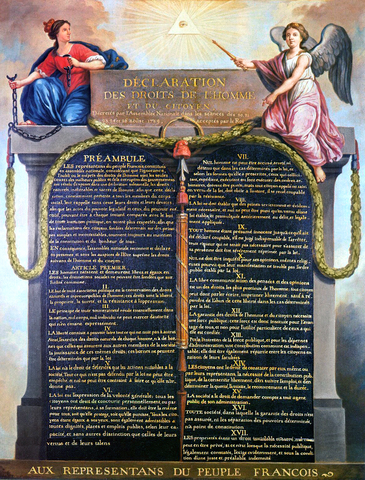 DÉCLARATION
DES DROITS DE L'HOMME
ET DU CITOYEN
Décrétés par l'Assemblée Nationale dans les séances des 20, 21
23, 24 et 26 août 1789, acceptés par le Roi
PRÉAMBULE
LES représentans du peuple François, constitués
en assemblée nationale, considérant que l'ignorance,
l'oubli ou le mépris des droits de l'homme sont les seules
causes des malheurs publics et de la corruption des gouvernemens
ont résolu d'exposer dans une déclaration solemnelle, les droits
naturels, inaliénables et sacrés de l'homme; afin que cette décla-
ration, constamment présente à tous les membres du corps
social, leur rappelle sans cesse leurs droits et leurs devoirs;
afin que les actes du pouvoir législatif et ceux du pouvoir exé-
cutif, pouvant être à chaque instant comparés avec le but
de toute institution politique, en soient plus respectés; afin que
les réclamations des citoyens, fondées désormais sur des principes
simples et incontestables, tournent toujours au maintien de
la constitution et du bonheur de tous.
EN conséquence, l'assemblée nationale reconnoit et déclare,
en présence et sous les auspices de l'Être suprême les droits
suivans de l'homme et du citoyen.
ARTICLE PREMIER.
LES hommes naissent et demeurent libres et égaux en
droits, les distinctions sociales ne peuvent être fondées que sur
l'utilité commune.
II.
LE but de toute association politique est la conservation des droits
naturels et imprescriptibles de l'homme; ces droits sont la liberté,
la propriété, la sureté, et la résistance à l'oppression.
III.
LE principe de toute souveraineté réside essentiellement dans
la nation, nul corps, nul individu ne peut exercer d'autorité
qui n'en émane expressément.
LA liberté consiste à pouvoir faire tout ce qui ne nuit pas à autrui
Ainsi, l'exercice des droits naturels de chaque homme, n'a de bor-
nes que celles qui assurent aux autres membres de la société
la jouissance de ces mêmes droits; ces bornes ne peuvent
être déterminées que par la loi
LA loi n'a le droit de défendre que les actions nuisibles à la
société. Tout ce qui n'est pas défendu par la loi ne peut être
empêché, et nul ne peut être contraint à faire ce qu'elle n'or-
donne pas.
VI.
LA loi est l'expression de la volonté générale; tous les
citoyens ont droit de concourir personnellement, ou par
leurs représentans, à sa formation; elle doit être la même
pour tous, soit qu'elle protege, soit qu'elle punisse. Tous les
citoyens étant égaux à ses yeux, sont également admissibles à
toutes dignités, places et emplois publics, selon leur ca-
pacité, et sans autres distinctions que celles de leurs
vertus et de leurs talens
VII.
NUL homme ne peut être accusé, arrêté, ni
détenu que dans les cas déterminés par la loi, et
selon les formes qu'elle a prescrites, ceux qui sollici-
tent, expédient, exécutent ou font exécuter des ordres
arbitraires, doivent être punis; mais tout citoyen appelé ou saisi
en vertu de la loi, doit obéir à l'instant, il se rend coupable
par la résistance.
VIII.
LA loi ne doit établir que des peines strictement et évidem-
ment nécessaires, et nul ne peut être puni qu'en vertu d'une
loi établie et promulguée antérieurement au délit, et légale-
ment appliquée.
IX.
TOUT homme étant présumé innocent jusqu'à ce qu'il ait
été déclaré coupable, s'il est jugé indispensable de l'arrêter,
toute rigueur qui ne seroit pas nécessaire pour s'assurer de
sa personne doit être sévèrement réprimée par la loi.
NUL ne doit être inquiété pour ses opinions, mêmes religi-
euses pourvu que leur manifestation ne trouble pas l'ordre
public établi par la loi.
XI.
LA libre communication des pensées et des opinions est
un des droits les plus précieux de l'homme; tout citoyen
peut donc parler, écrire, imprimer librement, sauf à ré-
pondre de l'abus de cette liberté dans les cas déterminés
par la loi.
XII.
LA garantie des droits de l'homme et du citoyen nécessite
une force publique; cette force est donc instituée pour l'avan-
tage de tous, et non pour l'utilité particulière de ceux à qui
elle est confiée.
XIII.
POUR l'entretien de la force publique, et pour les dépenses
d'administration, une contribution commune est indispen-
sable; elle doit être également répartie entre les citoyens en
raison de leurs facultés
XIV.
LES citoyens ont le droit de constater par eux même ou
par leurs représentans, la nécessité de la contribution publi-
que, de la consentir librement, d'en suivre l'emploi, et d'en
déterminer la quotité, l'assiette, le recouvrement et la durée.
XV.
LA société a le droit de demander compte à tout agent
public de son administration.
XVI.
TOUTE société, dans laquelle la garantie des droits n'est
pas assurée, ni la séparation des pouvoirs déterminée,
n'a point de constitution
XVII.
LES propriétés étant un droit inviolable et sacré, nul ne
peut en être privé, si ce n'est lorsque la nécessité publique,
légalement constatée, l'exige évidemment, et sous la condi-
tion d'une juste et préalable indemnité
AUX REPRESENTANS DU PEUPLE FRANCOIS